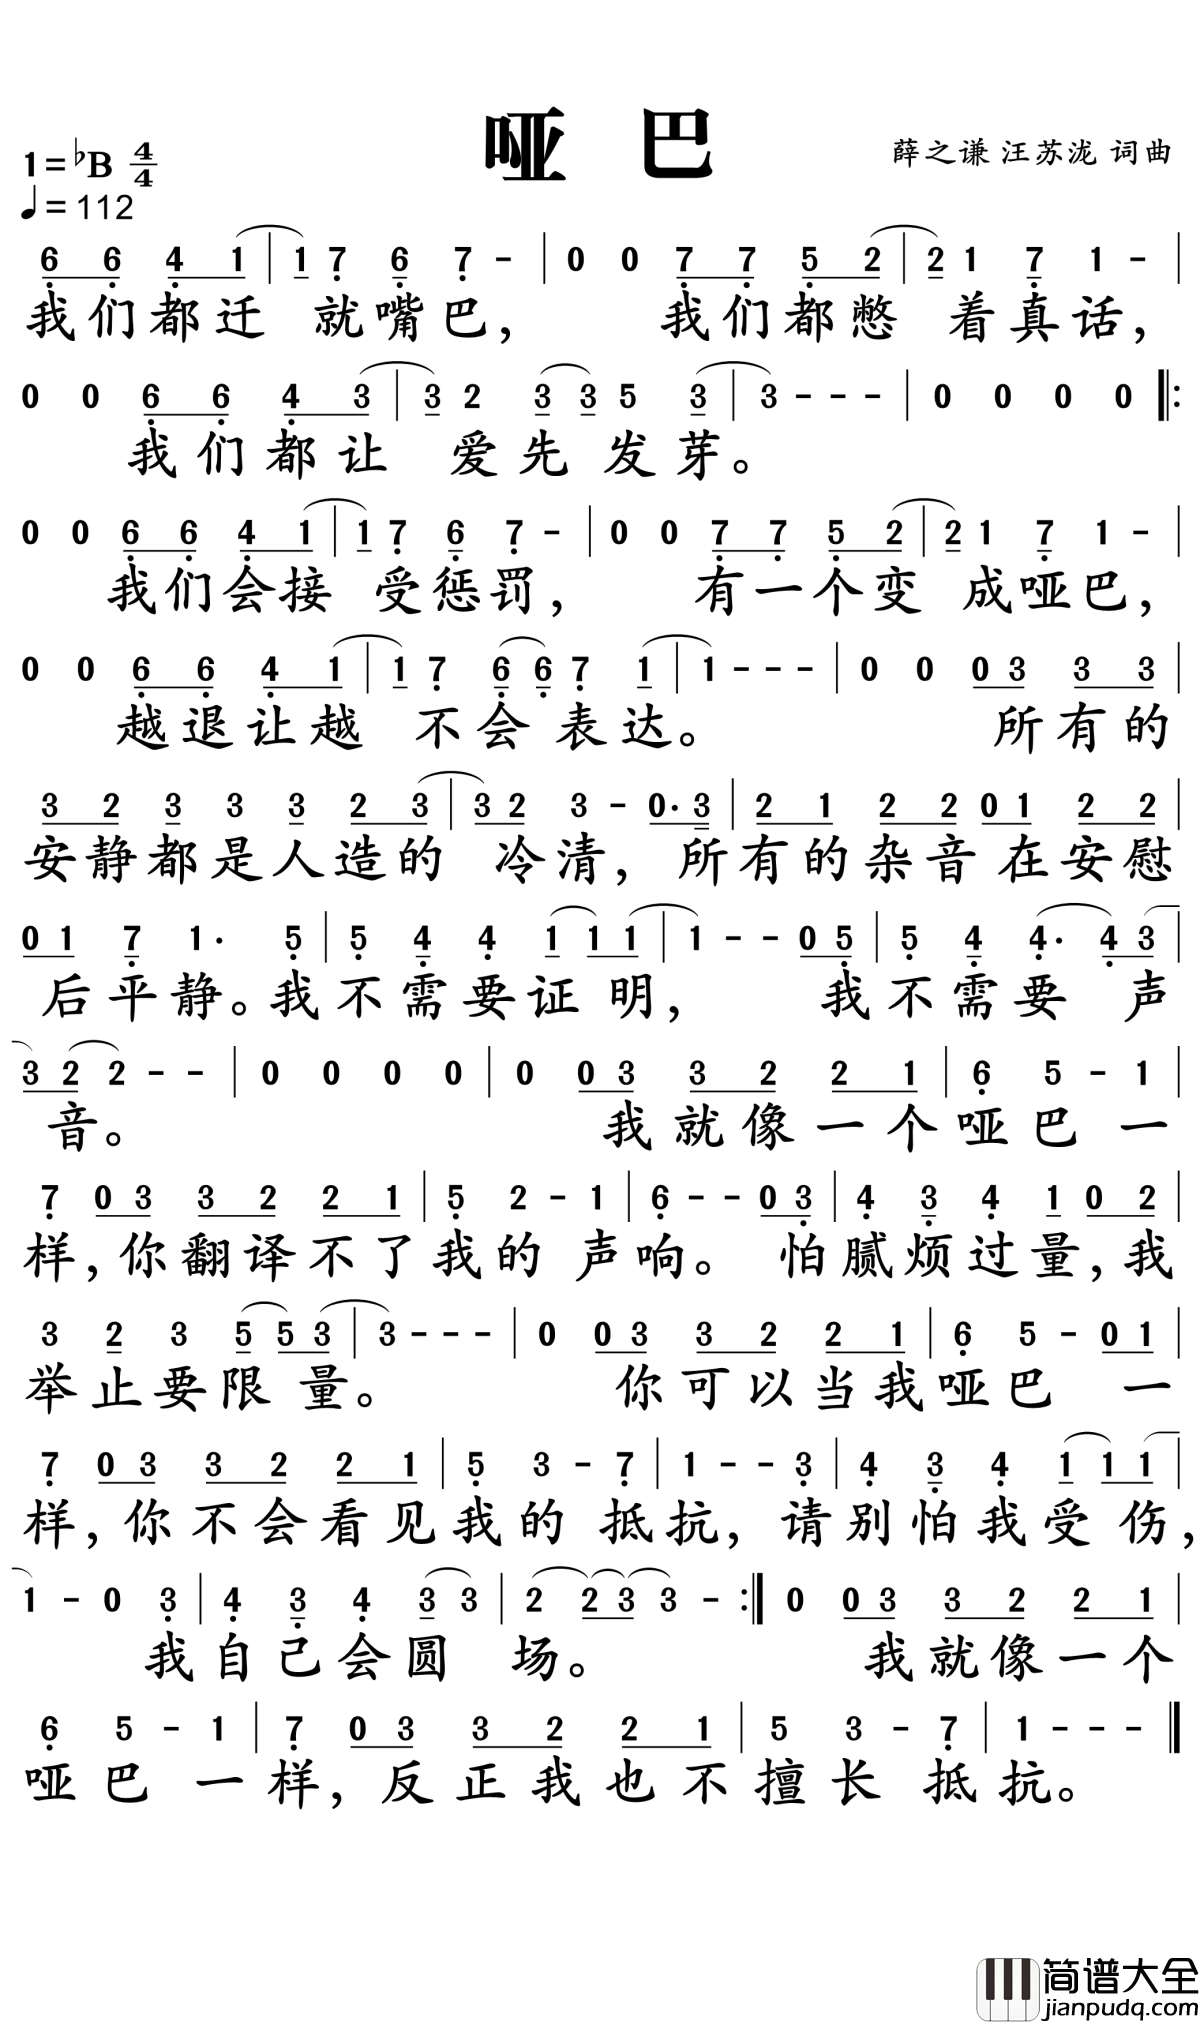 哑 巴
1=♭B 4/4
♩=112
薛之谦 汪苏泷 词曲
6 6 4 1 | 1 7 6 7 - | 0 0 7 7 5 2 | 2 1 7 1 - |
我们都迁 就嘴巴, 我们都憋 着真话,
0 0 6 6 4 3 | 3 2 3 3 5 3 | 3 - - - | 0 0 0 0 ‖:
我们都让 爱先发芽。
0 0 6 6 4 1 | 1 7 6 7 - | 0 0 7 7 5 2 | 2 1 7 1 - |
我们会接 受惩罚, 有一个变 成哑巴,
0 0 6 6 4 1 | 1 7 6 6 7 1 | 1 - - - | 0 0 0 3 3 3 |
越退让越 不会表达。 所有的
3 2 3 3 3 2 3 | 3 2 3 - 0· 3 | 2 1 2 2 0 1 2 2 |
安静都是人造的 冷清, 所有的杂音在安慰
0 1 7 1· 5 | 5 4 4 1 1 1 | 1 - - 0 5 | 5 4 4· 4 3 |
后平静。我不需要证明, 我不需要 声
3 2 2 - - | 0 0 0 0 | 0 0 3 3 2 2 1 | 6 5 - 1 |
音。 我就像一个哑巴一
7 0 3 3 2 2 1 | 5 2 - 1 | 6 - - 0 3 | 4 3 4 1 0 2 |
样, 你翻译不了我的 声响。 怕腻烦过量, 我
3 2 3 5 5 3 | 3 - - - | 0 0 3 3 2 2 1 | 6 5 - 0 1 |
举止要限量。 你可以当我哑巴 一
7 0 3 3 2 2 1 | 5 3 - 7 | 1 - - 3 | 4 3 4 1 1 1 |
样, 你不会看见我的 抵抗, 请别怕我受伤,
1 - 0 3 | 4 3 4 3 3 | 2 2 3 3 - :‖ 0 0 3 3 2 2 1 |
我自己会圆 场。 我就像一个
6 5 - 1 | 7 0 3 3 2 2 1 | 5 3 - 7 | 1 - - - ‖
哑巴一样, 反正我也不擅长 抵抗。
简谱大全
jianpudq.com